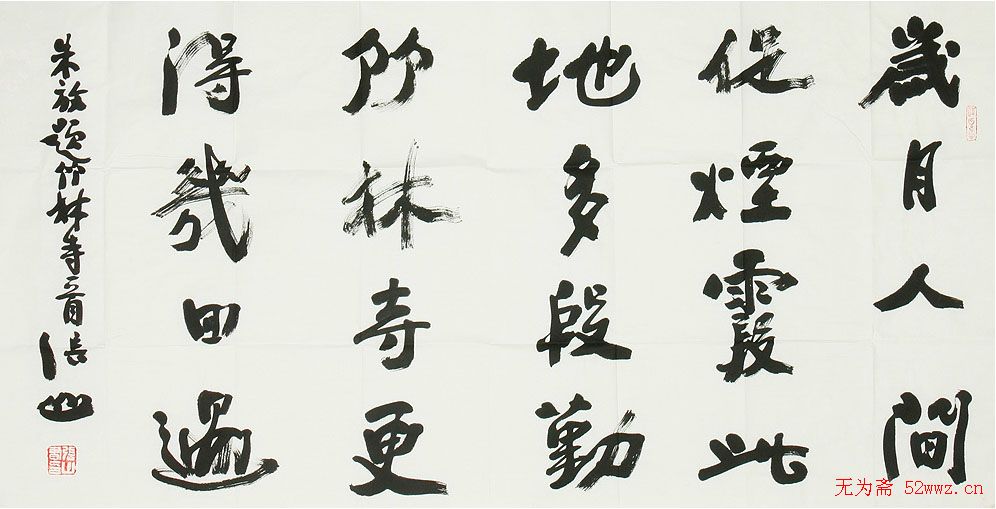 歲月人間
促煙霞此
地多殷勤
竹林寺更
得幾回過
朱放題竹林寺一首 張山
无为斋 52wwz.cn